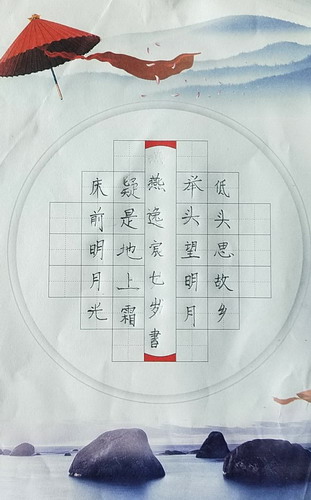 床前明月光
疑是地上霜
燕逸宸七岁書
举头望明月
低头思故乡